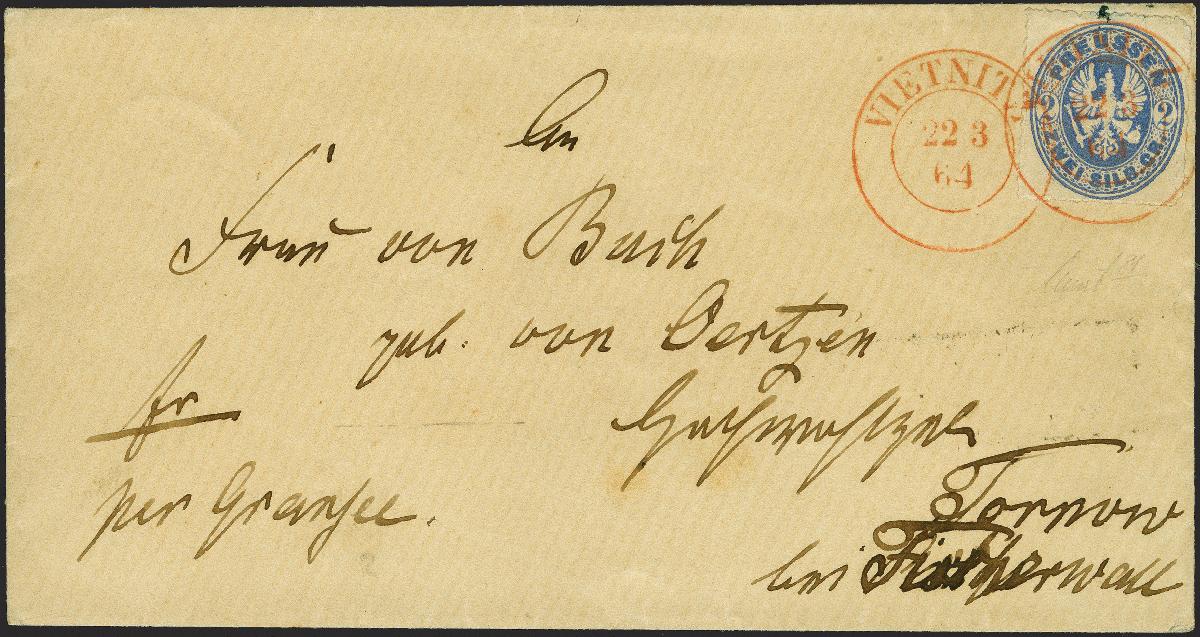 An
Frau von Bach
geb. von Oertzen
Hochwohlgeb
Fr
Tornow
per Gransee.
bei Fischerwall
VIETNITZ
22 3
64
PREUSSEN
2 2
ZWEI SILB. GR.
22 3
64